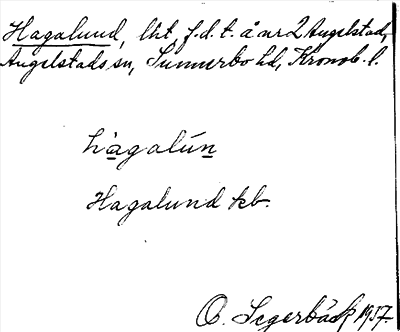 Hagalund, lht, f.d.t. å nr 2 Angelstad,
Angelstads sn, Sunnerbo hd, Kronob. l.
hàgalún
Hagalund kb.
O. Segerbäck 1937.